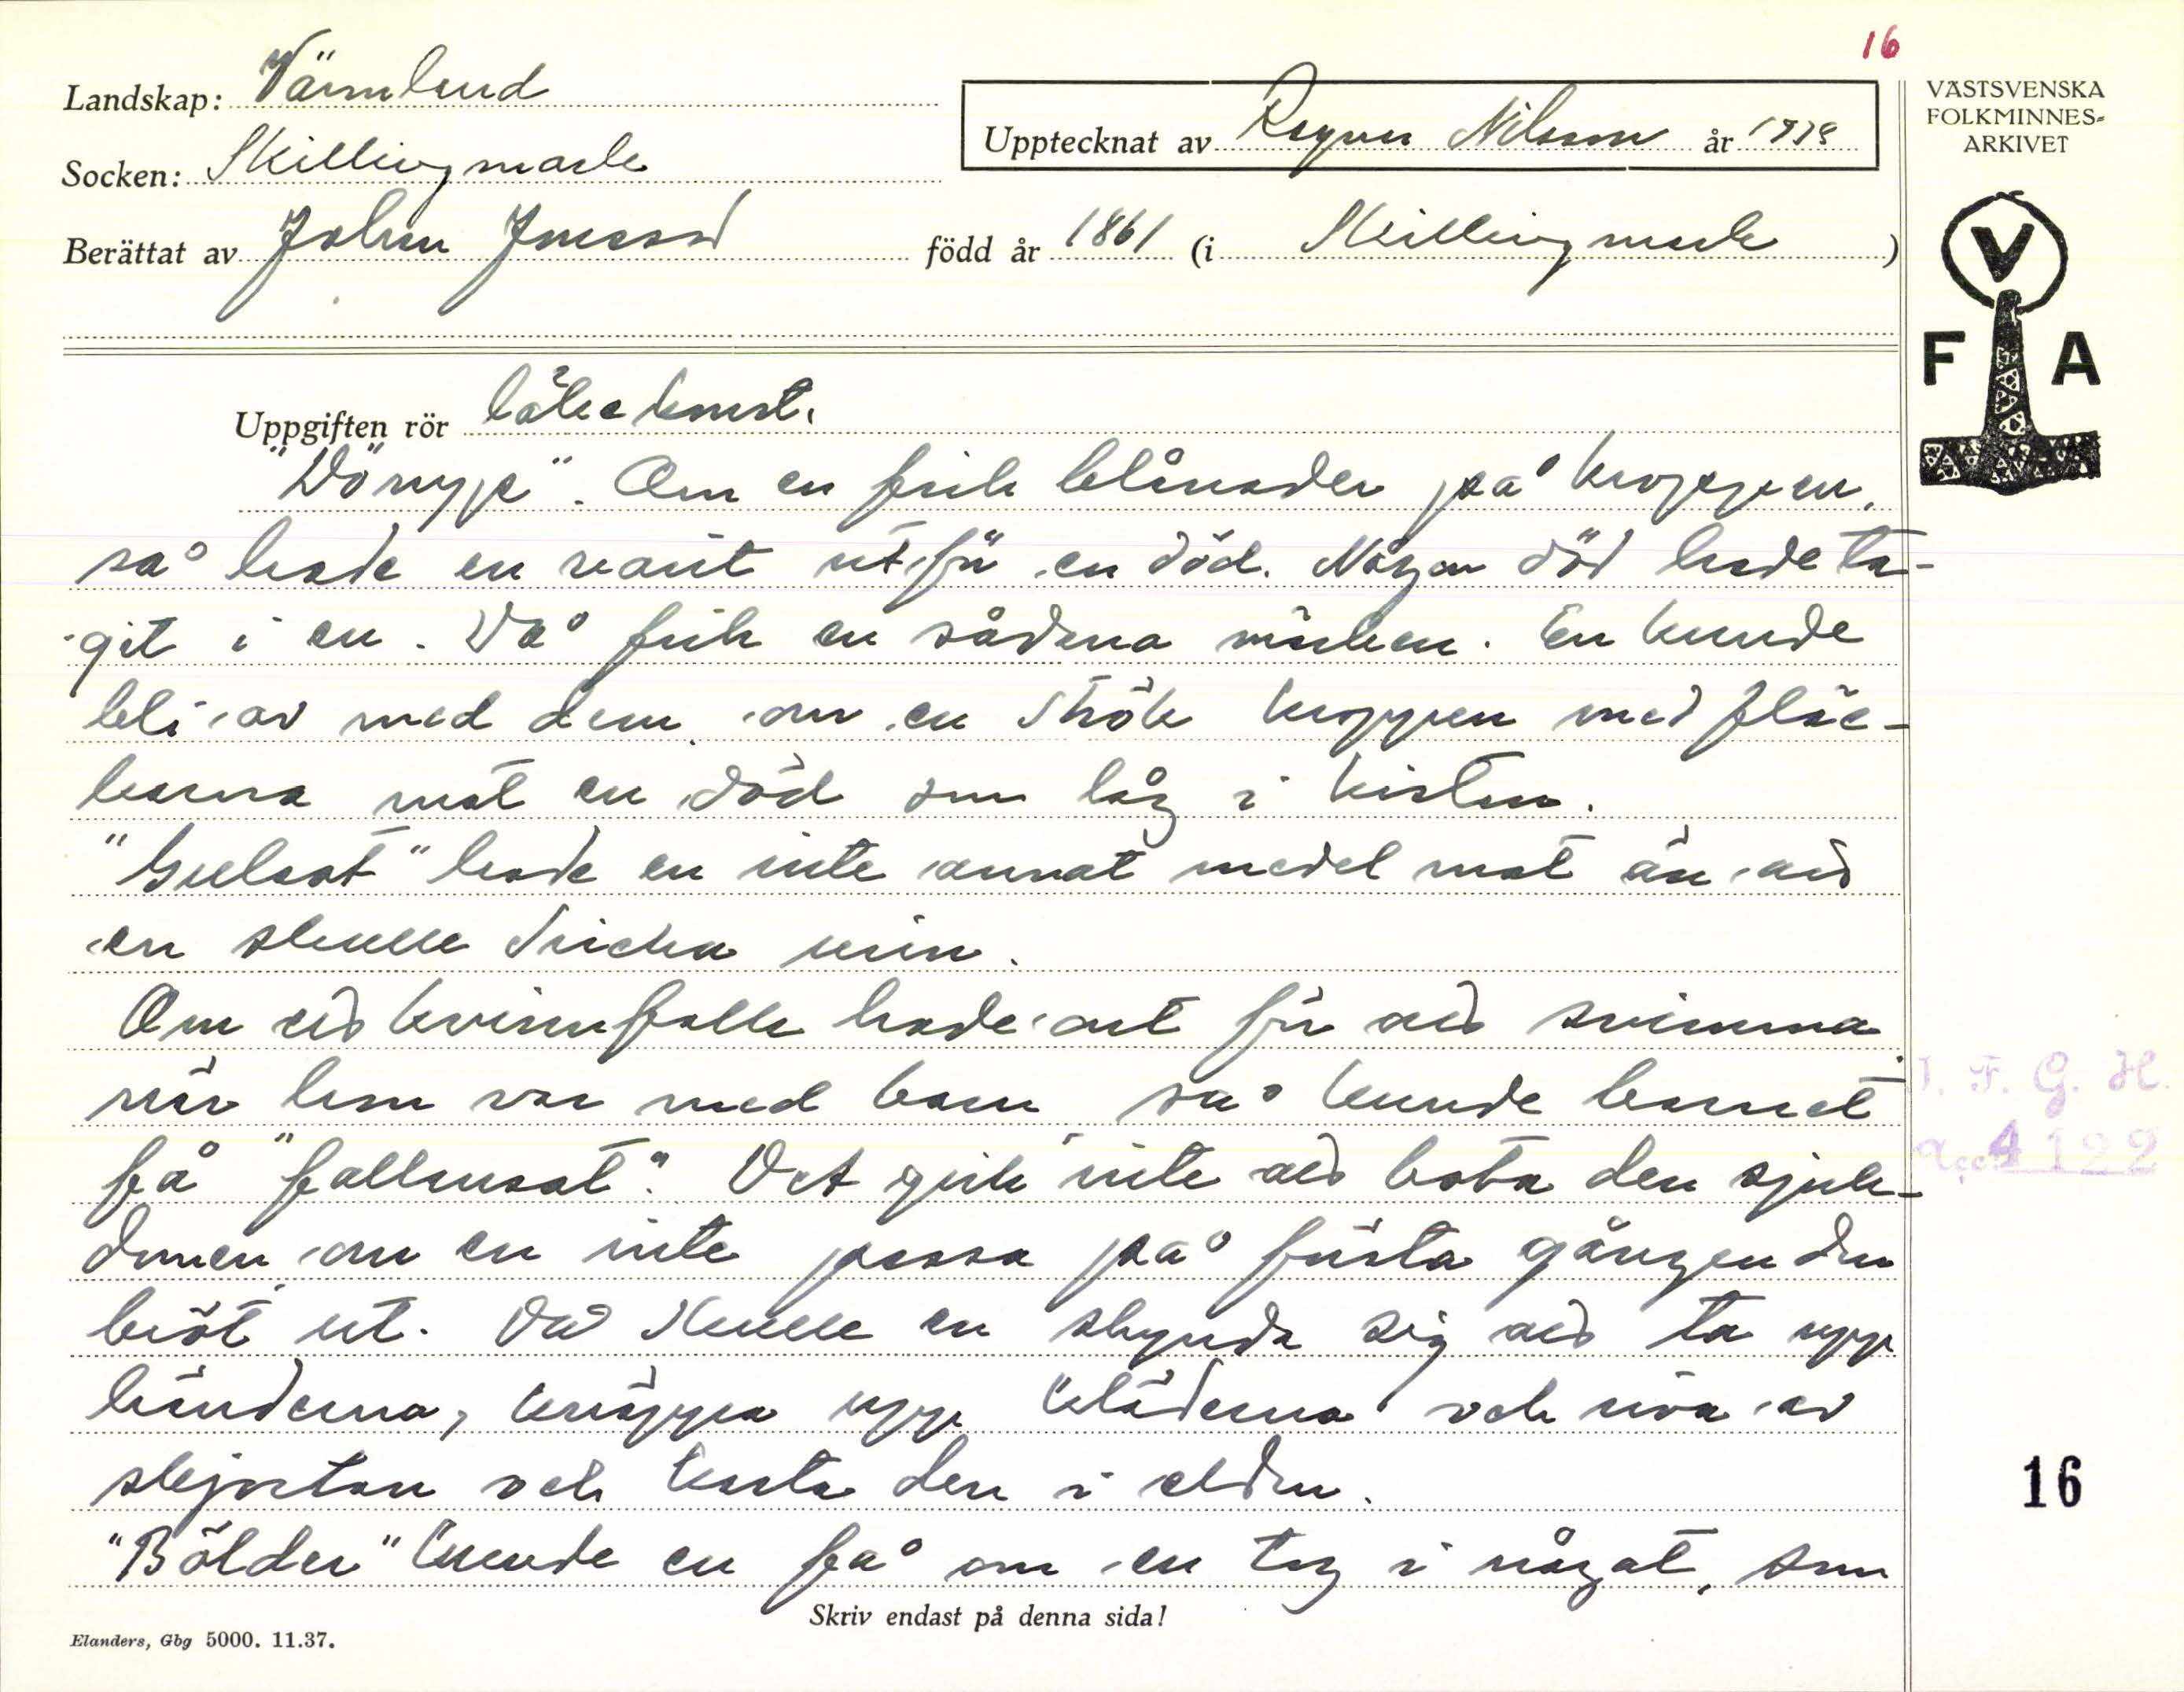 16
Landskap: Värmland
Socken: Skillingmark
Upptecknat av Ragnar Nilsson år
VÄSTSVENSKA
FOLKMINNES=
ARKIVET
Berättat av Johan född år 1861 (i Skillingmark )
V
F A
Uppgiften rör läkekonst.
"Dönyp". Om en fick blånader på kroppen,
så hade en varit ut för en död. Någon död hade ta-
git i en. Då fick en sådana märken. En kunde
bli av med dem, om en strök kroppen med fläc-
karna mot en död som låg i kistan.
"Gulsot" hade en inte annat medel mot än att
en skulle dricka urin.
Om ett kvinnfolk hade ont för att svimma
när hon var med barn, så kunde barnet
få "fallensot". Det gick inte att bota den sjuk-
domen, om en inte passa på första gången den
bröt ut. Då skulle en skynda sig att ta upp
händerna, knäppa upp kläderna och riva av
skjortan och kasta den i elden.
"Bölder" kunde en få om en tog i något, som
I. F. G. H.
acc. 4122
16
Skriv endast på denna sida!
Elanders, Gbg 5000. 11.37.